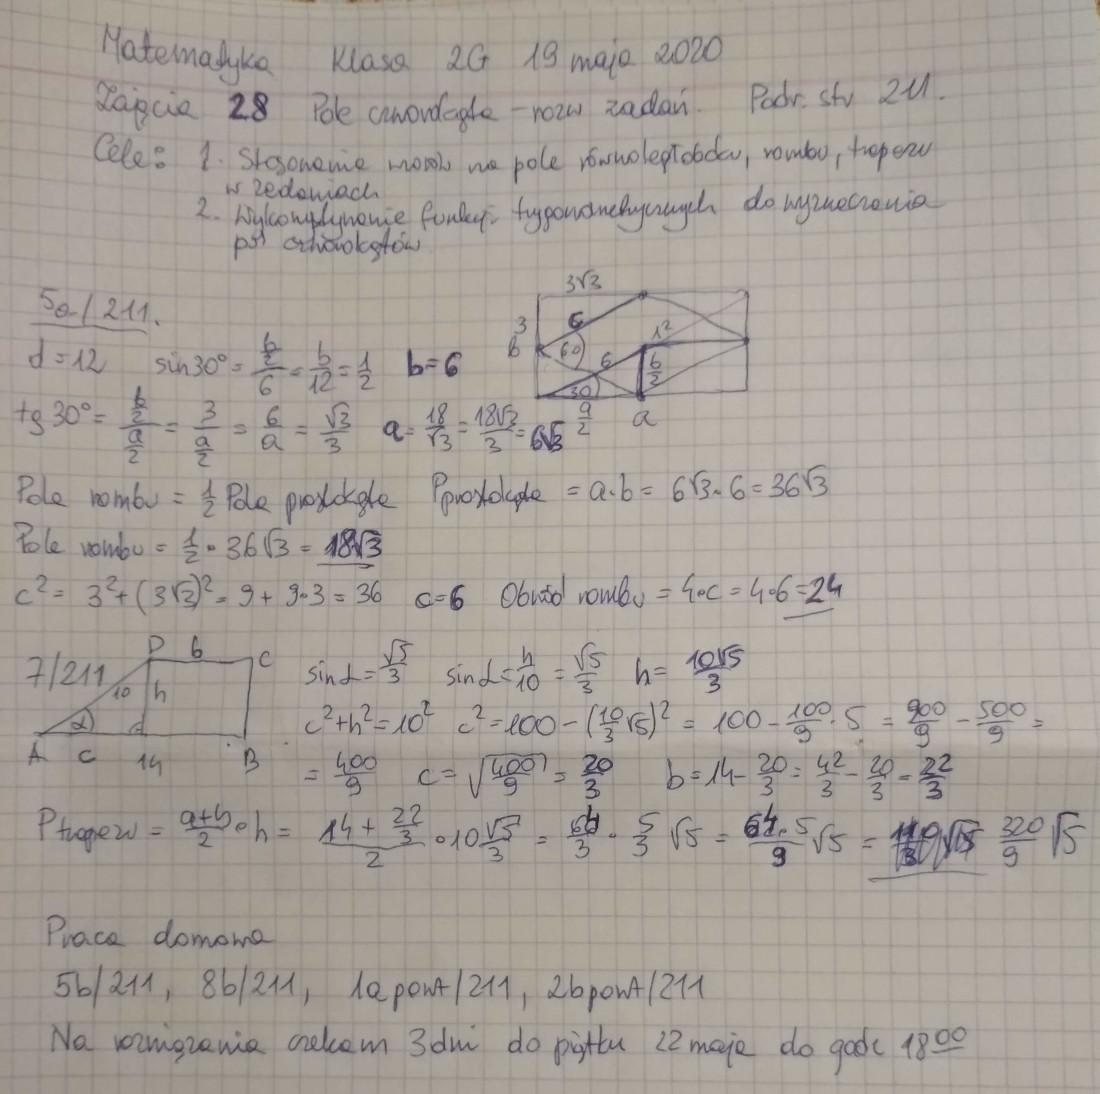 Matematyka Klasa 2G 19 maja 2020
Zajęcia 28 Pole czworokąta – rozw zadań. Podr. str 211.
Cele: 1. Stosowanie wzorów na pole równoległoboku, rombu, trapezu
w zadaniach
2. Wykorzystywanie funkcji trygonometrycznych do wyznaczania
pól czworokątów
5a/211.
3√3
3
b
6
60
12
6
b/2
30
a/2
a
d=12 sin30° = (b/2)/6 = b/12 = 1/2 b=6
tg 30° = (b/2)/(a/2) = 3/(a/2) = 6/a = √3/3 a = 18/√3 = 18√3/3 = 6√3
Pole rombu = 1/2 Pola prostokąta Pprostokąta = a·b = 6√3·6 = 36√3
Pole rombu = 1/2 · 36√3 = 18√3
c² = 3²+(3√3)² = 9 + 9·3 = 36 c=6 Obwód rombu = 4·c = 4·6=24
7/211
D b C
10 h
α
A c 14 B
sin α = √5/3 sin α = h/10 = √5/3 h = 10√5/3
c²+h² = 10² c² = 100 – (10/3 √5)² = 100 – 100/9 · 5 = 900/9 – 500/9 =
= 400/9 c = √(400/9) = 20/3 b = 14 – 20/3 = 42/3 – 20/3 = 22/3
Ptrapezu = (a+b)/2 · h = (14 + 22/3)/2 · 10 √5/3 = 64/3 · 5/3 √5 = 64·5/9 √5 = 320/9 √5
Praca domowa
5b/211, 8b/211, 1a powt/211, 2b powt/211
Na rozwiązania czekam 3 dni do piątku 22 maja do godz 18 00